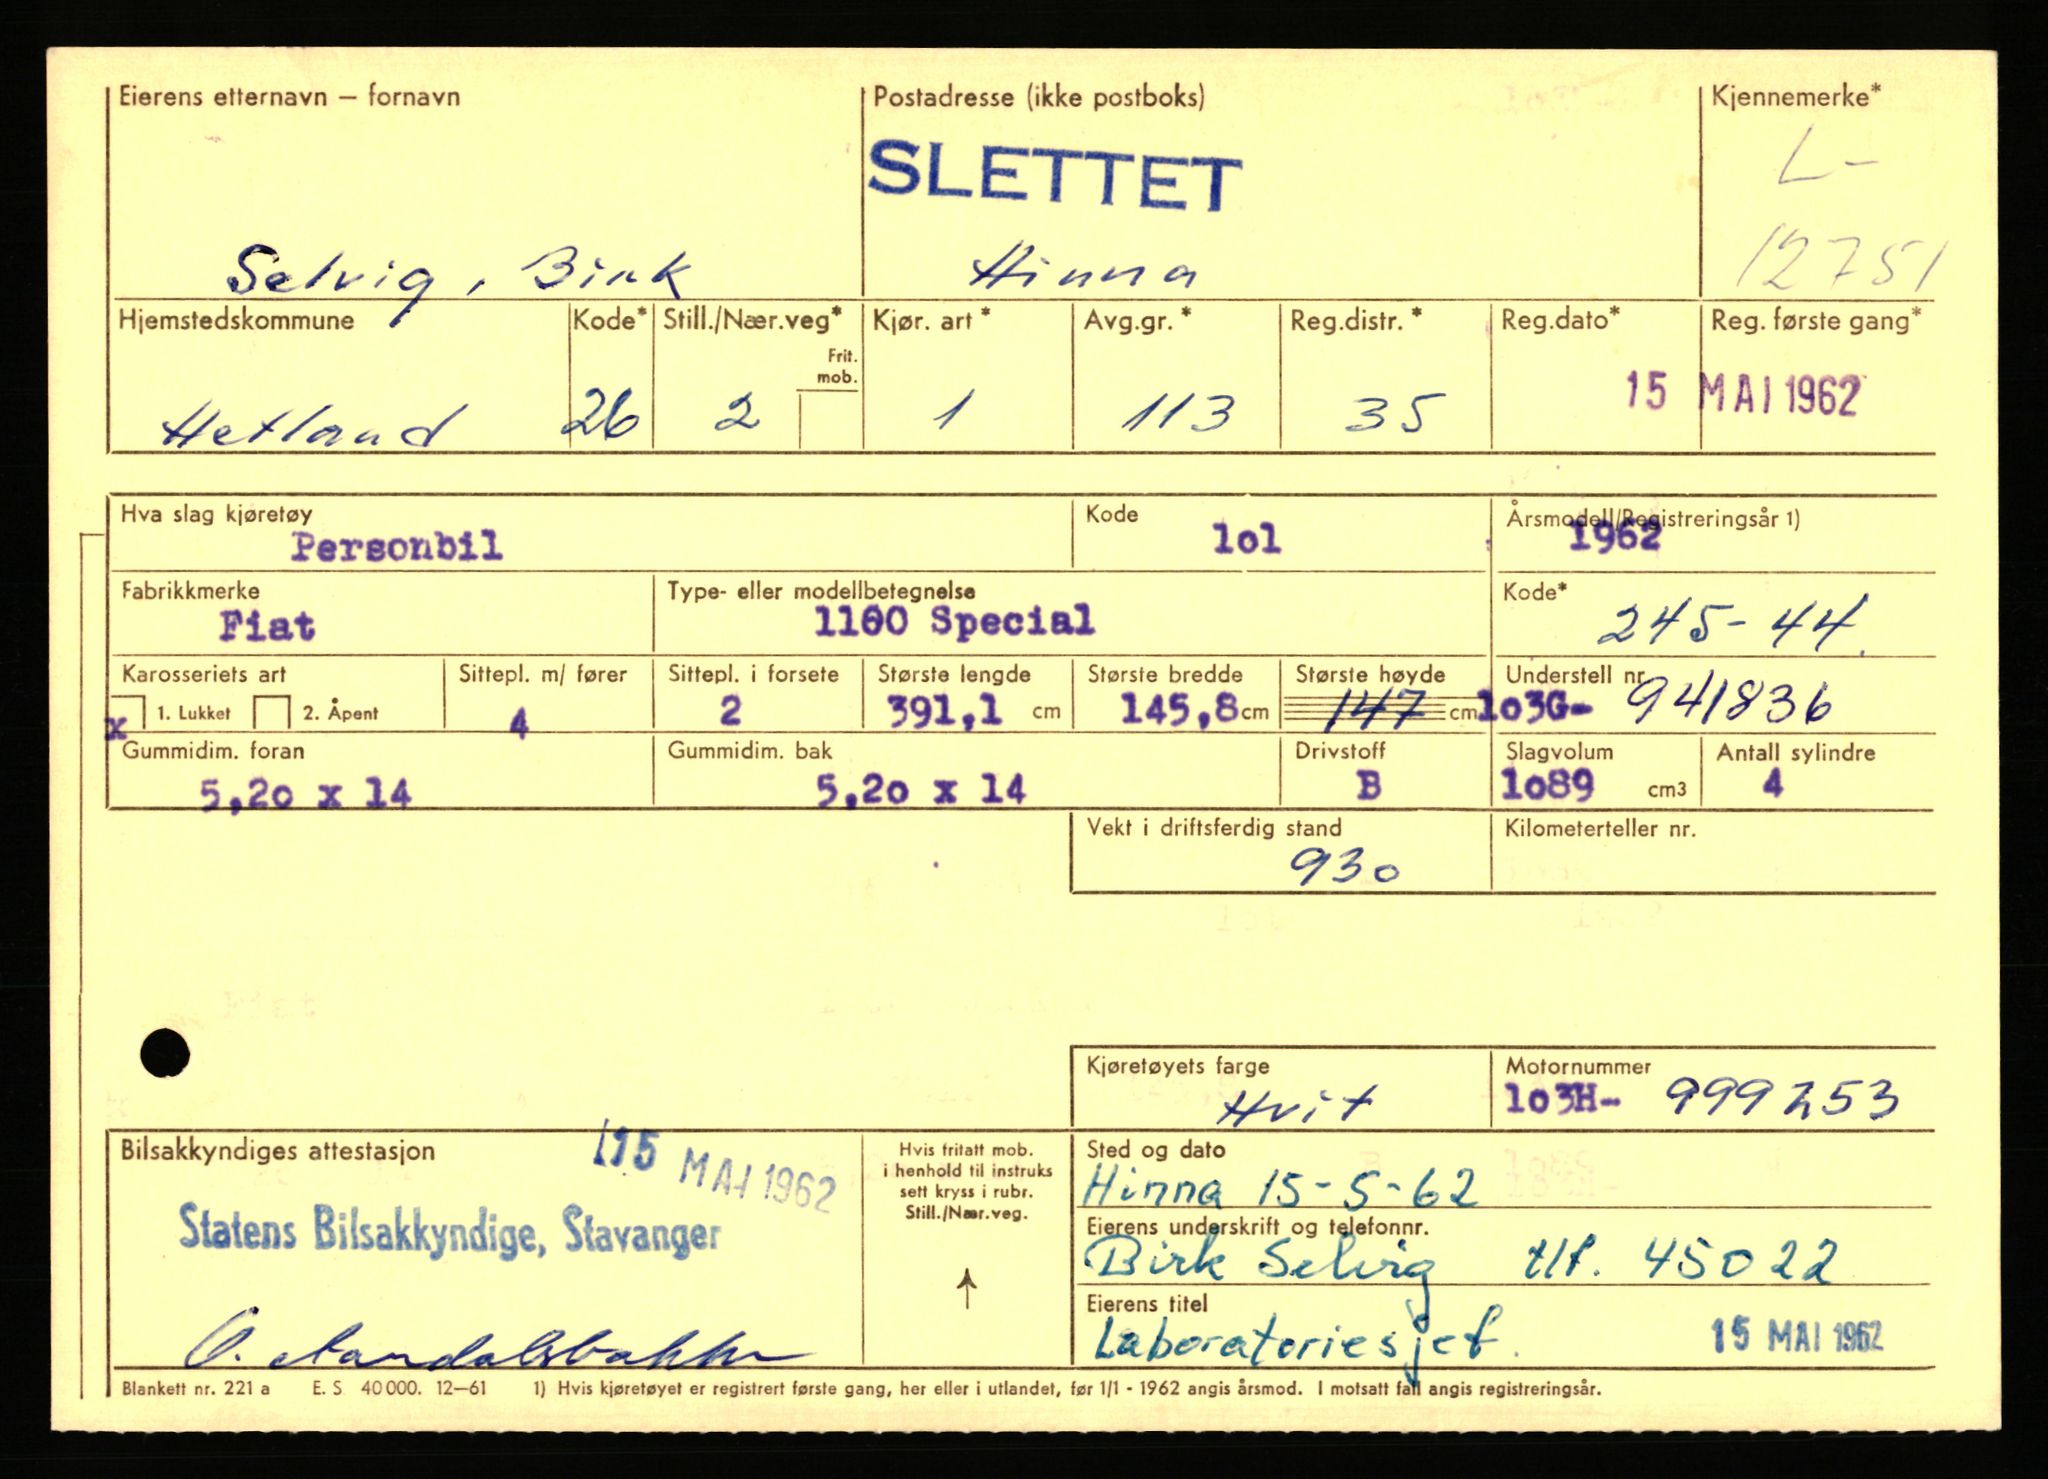 Eierens etternavn — fornavn Postadresse (ikke postboks) Kjennemerke*
SLETTET L-
Selvig, Birk Hinna 12751
Hjemstedskommune Kode* Still./Nær.veg* Kjør. art* Avg.gr.* Reg.distr.* Reg.dato* Reg. første gang*
Frit. mob.
Hetland 26 2 1 113 35 15 MAI 1962
Hva slag kjøretøy Kode Årsmodell/Registreringsår 1)
Personbil lol 1962
Fabrikkmerke Type- eller modellbetegnelse Kode*
Fiat 1100 Special 245-44
Karosseriets art Sittepl. m/ fører Sittepl. i forsete Største lengde Største bredde Største høyde Understell nr.
x 1. Lukket 2. Åpent 4 2 391,1 cm 145,8 cm 147 cm lo3G- 941836
Gummidim. foran Gummidim. bak Drivstoff Slagvolum Antall sylindre
5,2o x 14 5,2o x 14 B lo89 cm3 4
Vekt i driftsferdig stand Kilometerteller nr.
930
Kjøretøyets farge Motornummer
Hvit lo3H- 999253
Bilsakkyndiges attestasjon 15 MAI 1962
Hvis fritatt mob.
i henhold til instruks
sett kryss i rubr.
Still./Nær.veg.
Statens Bilsakkyndige, Stavanger
↑
Sted og dato
Hinna 15-5-62
Eierens underskrift og telefonnr.
Birk Selvig tlf. 45022
Eierens titel
Laboratoriesjef. 15 MAI 1962
Blankett nr. 221 a E. S. 40 000. 12—61 1) Hvis kjøretøyet er registrert første gang, her eller i utlandet, før 1/1 - 1962 angis årsmod. I motsatt fall angis registreringsår.